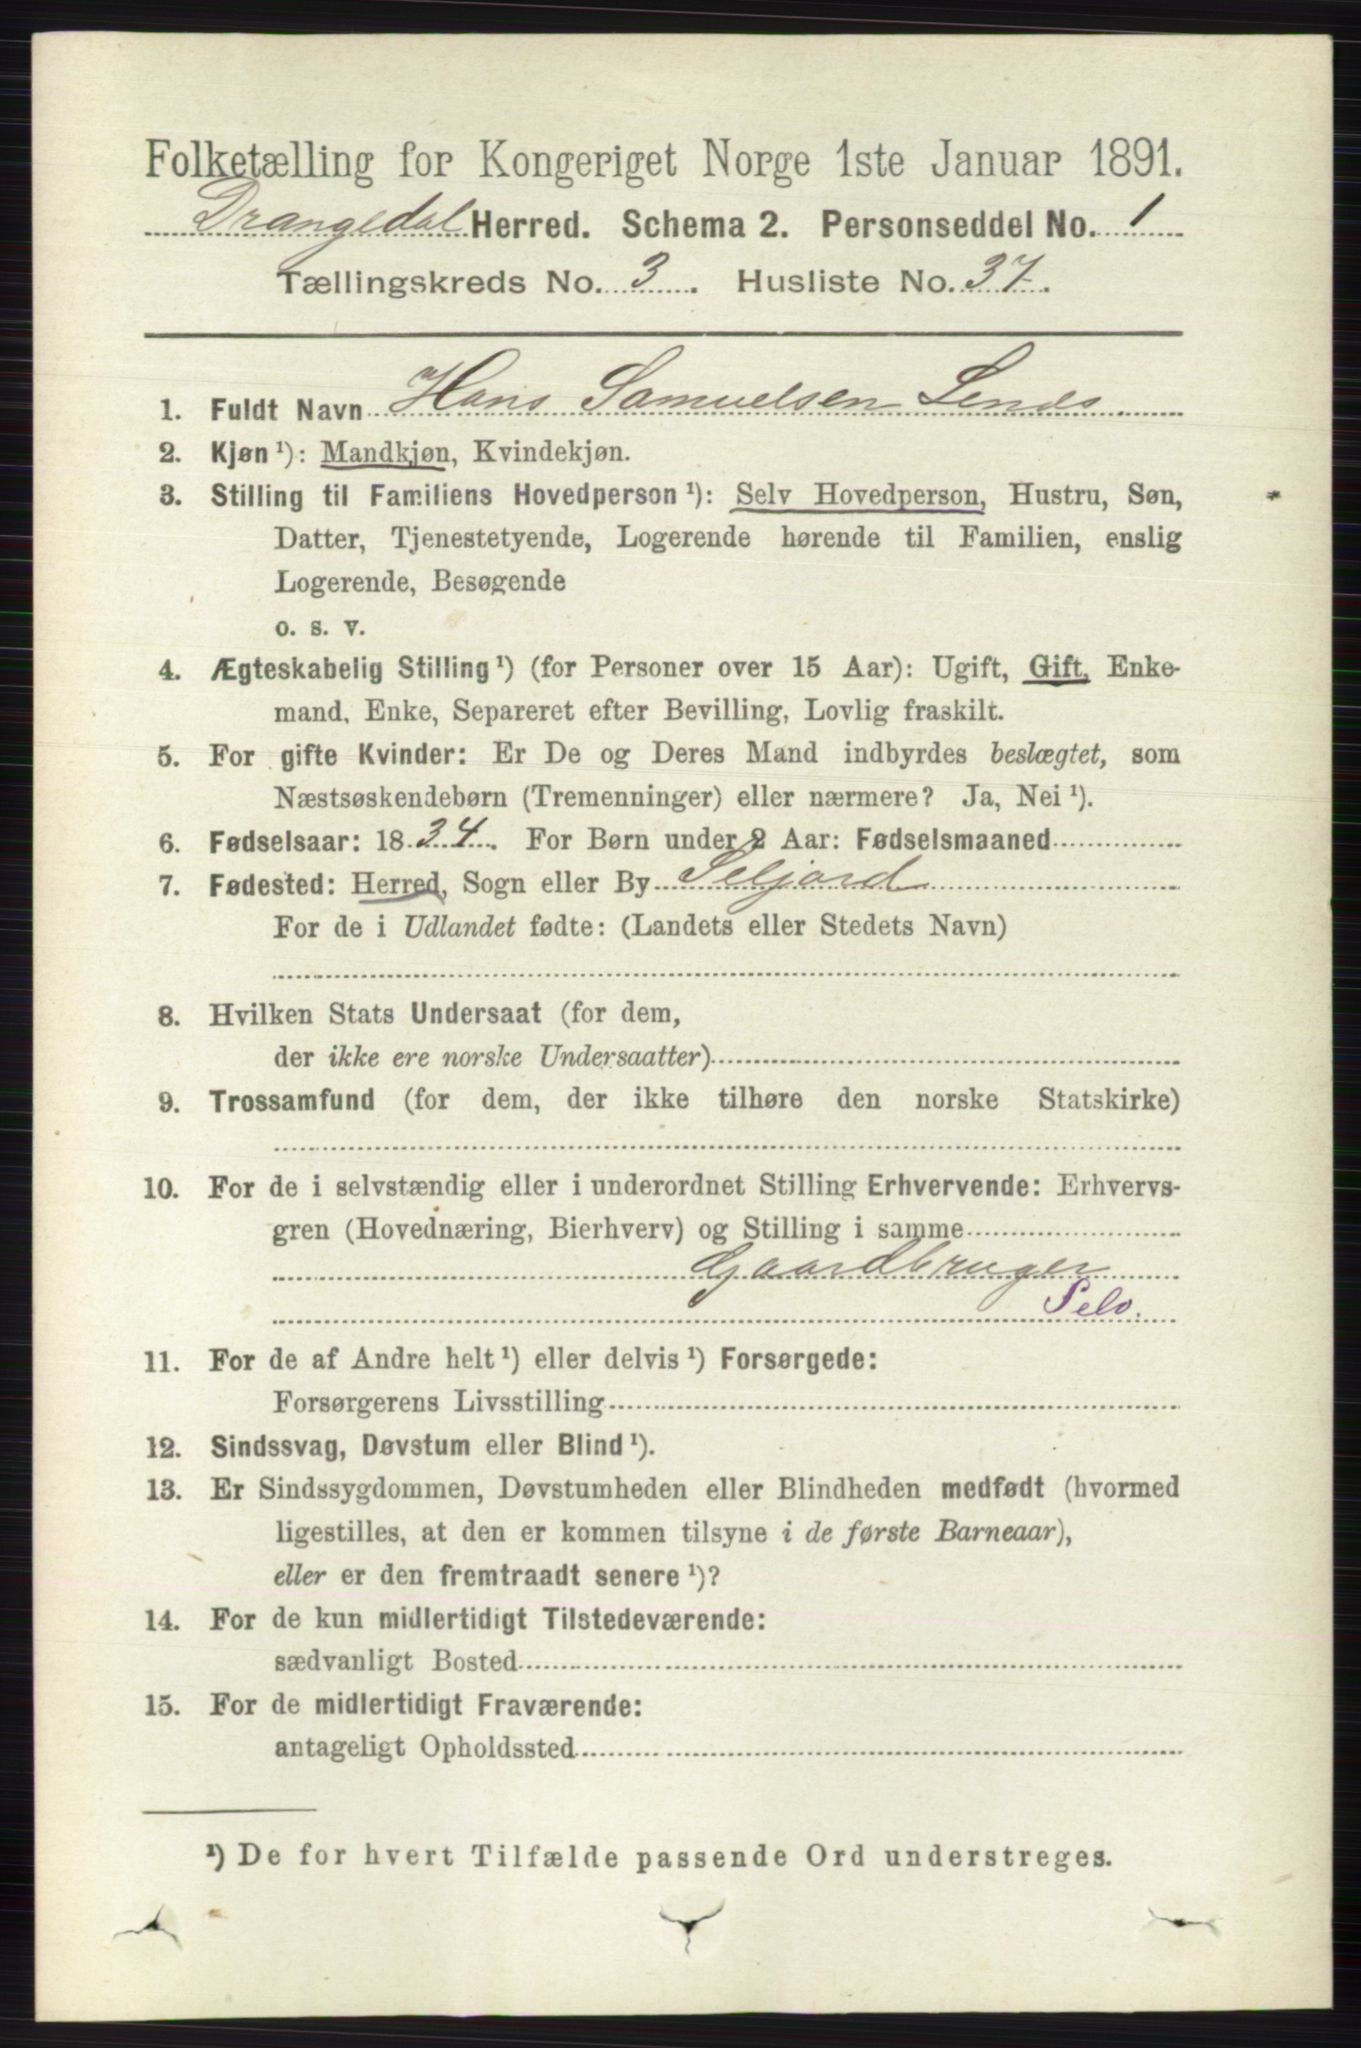 Folketælling for Kongeriget Norge 1ste Januar 1891.
Drangedal Herred. Schema 2. Personseddel No. 1
Tællingskreds No. 3. Husliste No. 37.
1. Fuldt Navn Hans Samuelsen
2. Kjøn ¹): Mandkjøn, Kvindekjøn.
3. Stilling til Familiens Hovedperson ¹): Selv Hovedperson, Hustru, Søn,
Datter, Tjenestetyende, Logerende hørende til Familien, enslig
Logerende, Besøgende
o. s. v.
4. Ægteskabelig Stilling ¹) (for Personer over 15 Aar): Ugift, Gift, Enke-
mand, Enke, Separeret efter Bevilling, Lovlig fraskilt.
5. For gifte Kvinder: Er De og Deres Mand indbyrdes beslægtet, som
Næstsøskendebørn (Tremenninger) eller nærmere? Ja, Nei ¹).
6. Fødselsaar: 1834. For Børn under 2 Aar: Fødselsmaaned
7. Fødested: Herred, Sogn eller By Seljord
For de i Udlandet fødte: (Landets eller Stedets Navn)
8. Hvilken Stats Undersaat (for dem,
der ikke ere norske Undersaatter)
9. Trossamfund (for dem, der ikke tilhøre den norske Statskirke)
10. For de i selvstændig eller i underordnet Stilling Erhvervende: Erhvervs-
gren (Hovednæring, Bierhverv) og Stilling i samme
Gaardbruger
Selv.
11. For de af Andre helt ¹) eller delvis ¹) Forsørgede:
Forsørgerens Livsstilling
12. Sindssvag, Døvstum eller Blind ¹).
13. Er Sindssygdommen, Døvstumheden eller Blindheden medfødt (hvormed
ligestilles, at den er kommen tilsyne i de første Barneaar),
eller er den fremtraadt senere ¹)?
14. For de kun midlertidigt Tilstedeværende:
sædvanligt Bosted
15. For de midlertidigt Fraværende:
antageligt Opholdssted
¹) De for hvert Tilfælde passende Ord understreges.